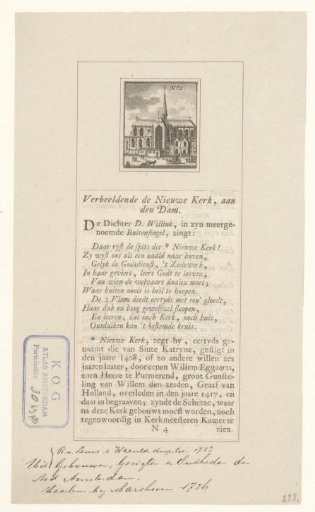 N°2.
Verbeeldende de Nieuwe Kerk, aan
den Dam.
De Dichter D. Willink, in zyn meerge-
noemde Buitensingel, zingt:
Daar ryst de spits der * Nieuwe Kerk!
Zo wyst ons als een naald naar boven,
Gelyk de Godsdienst, 't Zielewerk,
In haar geviert, leert Godt te loven,
Van wien de welvaart daalen moet,
Waar buiten nooit is heil te hoopen.
De Vlam deedt eertyds met een gloedt,
Haar dak en hoog gewelfzel sloopen,
En leeren, dat noch Kerk, noch huis,
Ontduiken kan 't bestemde kruis.
* Nieuwe Kerk, zegt hy, eertyds ge-
naamt die van Sinte Katryne, gestigt in
den jaare 1408, of zo andere willen zes
jaaren laater, door eenen Willem Eggaarts,
toen Heere te Purmerend, groot Gunste-
ling van Willem den zesden, Graaf van
Holland, overleden in den jaare 1417, en
daar in begraaven; zynde de Schetze, waar
na deze Kerk gebouwt moest worden, noch
tegenwoordig in Kerkmeesteren Kamer te
N 4
zien.
K.O.G
ATLAS AMSTERDAM
Portefeuille
Uit Gebouwen, Gezigten en Oudheden der
Stad Amsterdam.
Haarlem by Marshoorn 1736